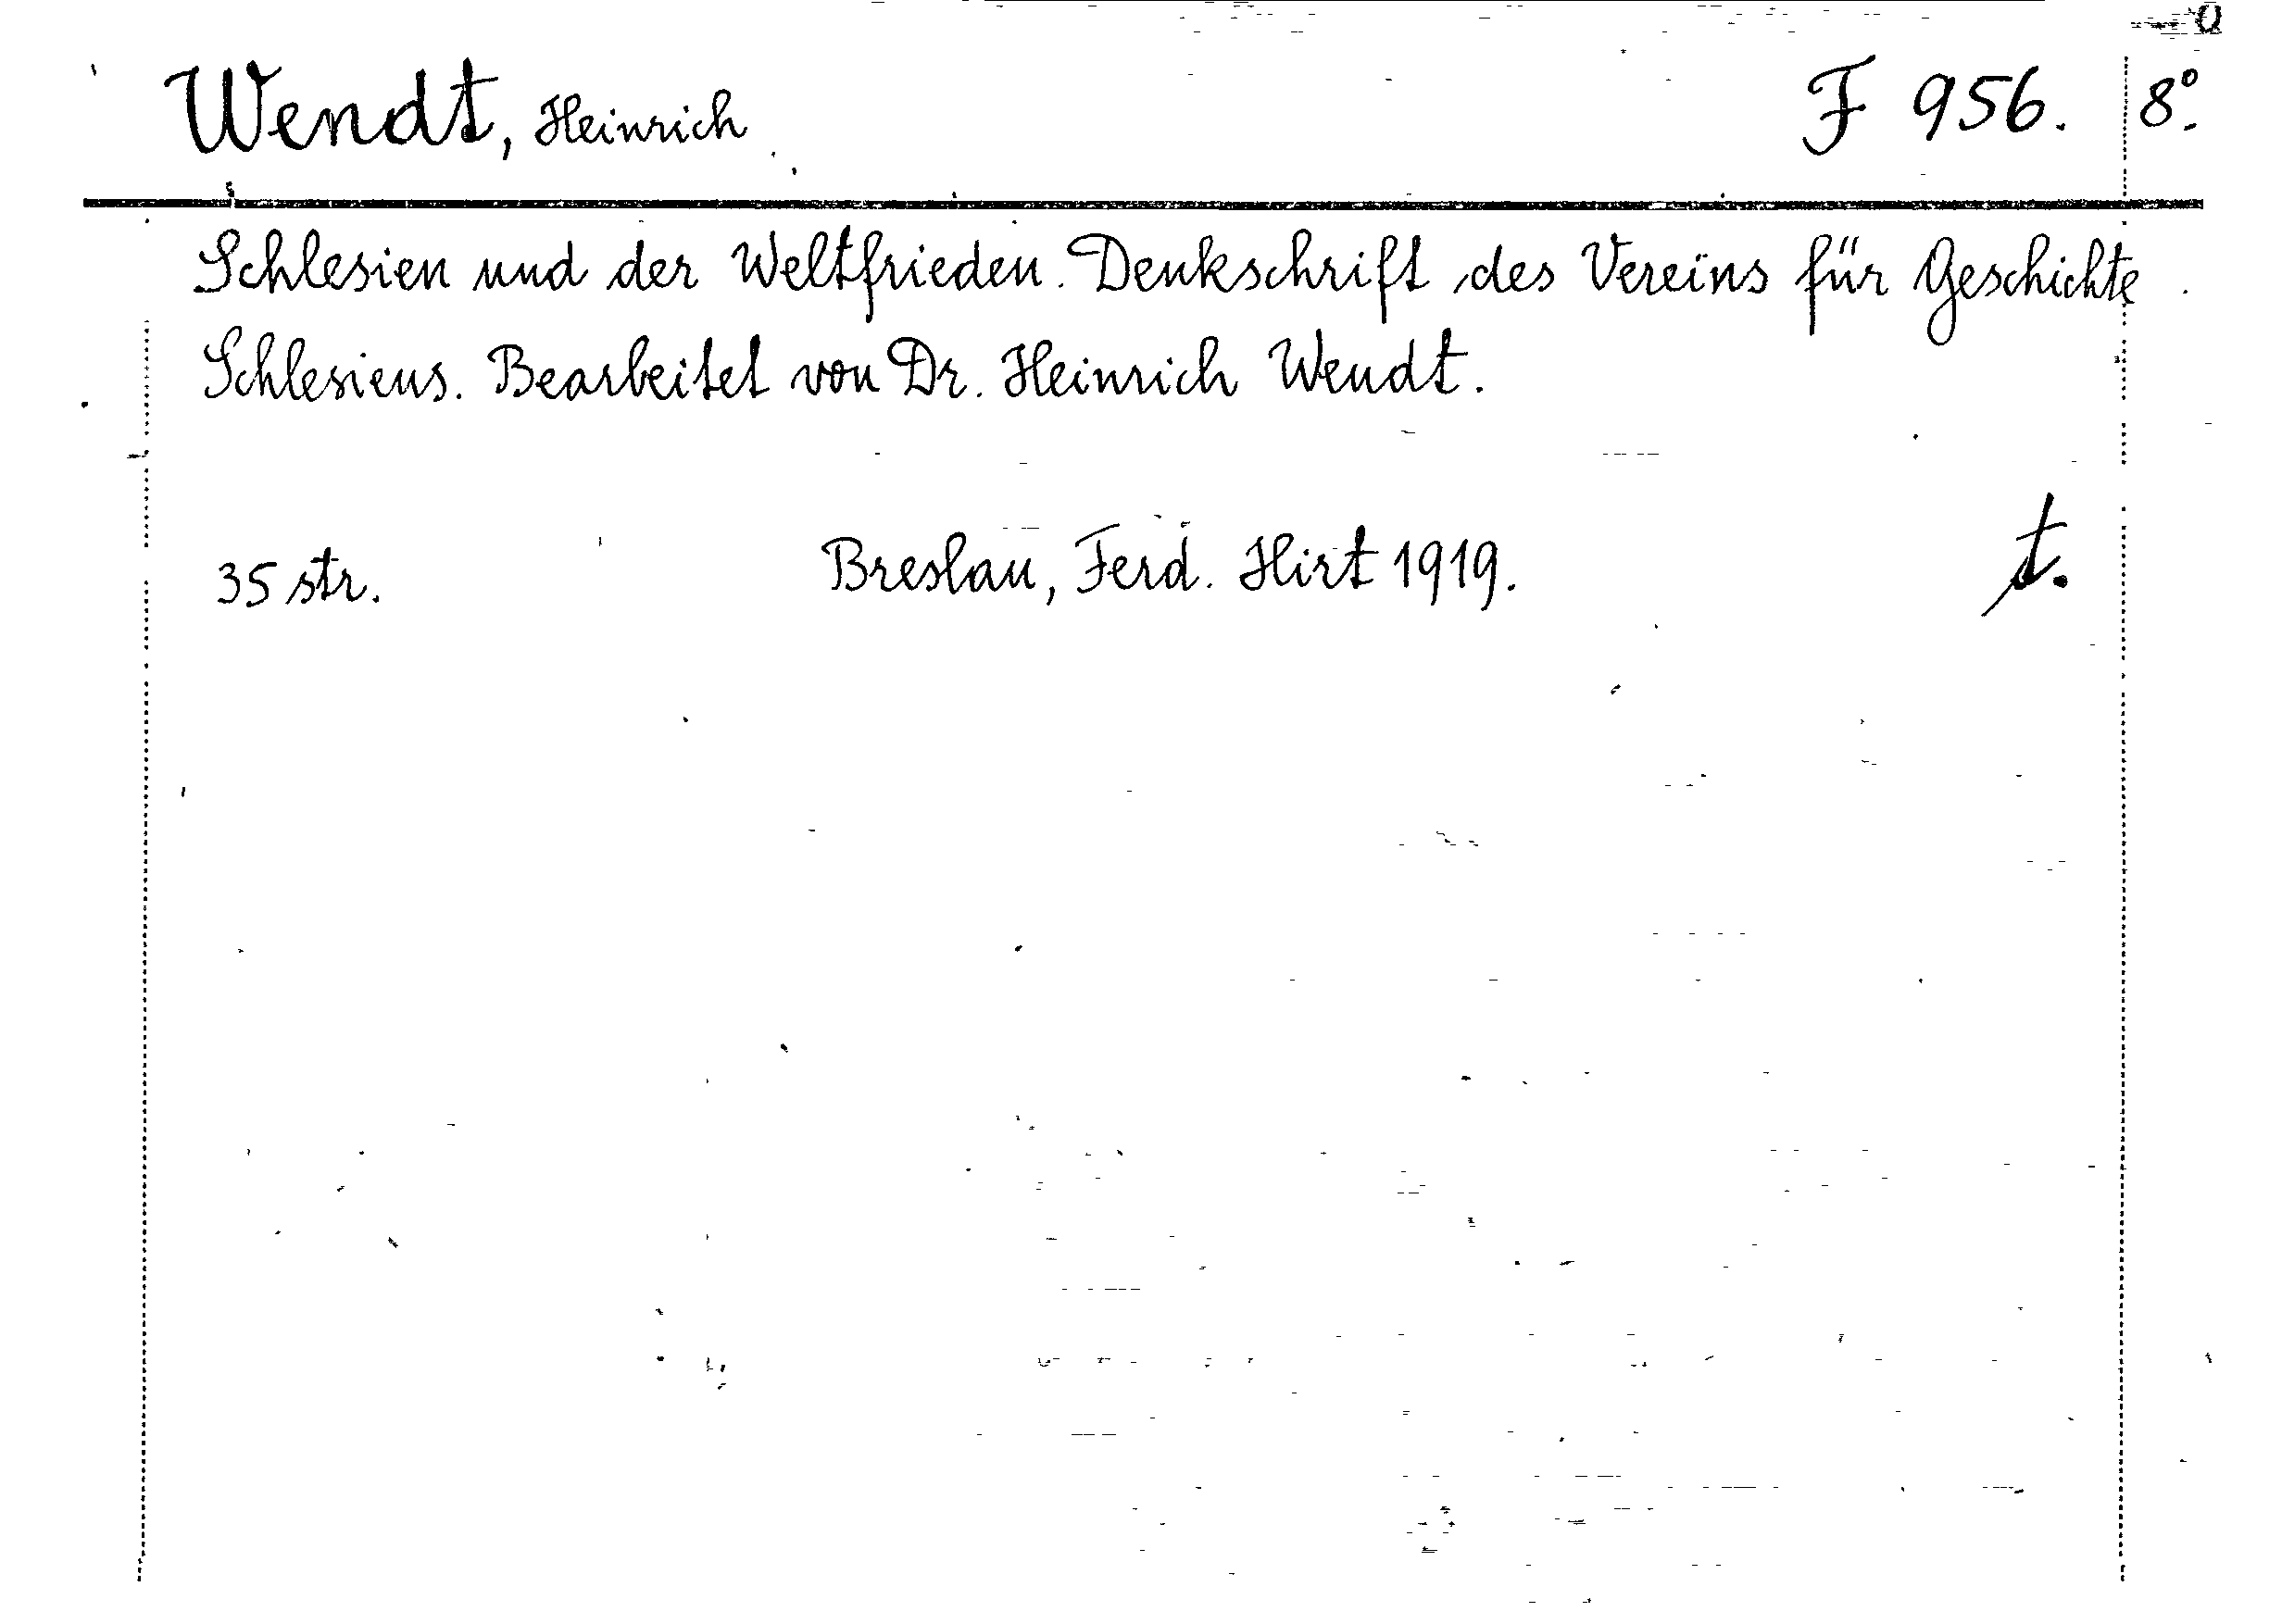 Wendt, Heinrich F 956. 8º.
Schlesien und der Weltfrieden. Denkschrift des Vereins für Geschichte
Schlesiens. Bearbeitet von Dr. Heinrich Wendt.
35 str. Breslau, Ferd. Hirt 1919. t.